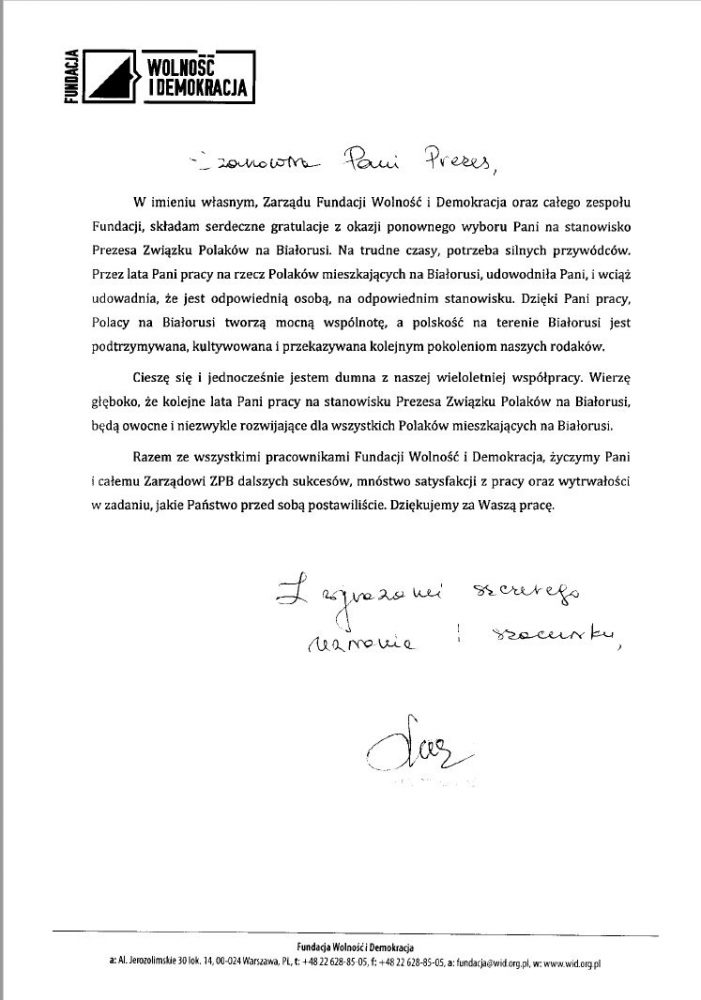 FUNDACJA
WOLNOŚĆ
I DEMOKRACJA
Szanowna Pani Prezes,
W imieniu własnym, Zarządu Fundacji Wolność i Demokracja oraz całego zespołu
Fundacji, składam serdeczne gratulacje z okazji ponownego wyboru Pani na stanowisko
Prezesa Związku Polaków na Białorusi. Na trudne czasy, potrzeba silnych przywódców.
Przez lata Pani pracy na rzecz Polaków mieszkających na Białorusi, udowodniła Pani, i wciąż
udowadnia, że jest odpowiednią osobą, na odpowiednim stanowisku. Dzięki Pani pracy,
Polacy na Białorusi tworzą mocną wspólnotę, a polskość na terenie Białorusi jest
podtrzymywana, kultywowana i przekazywana kolejnym pokoleniom naszych rodaków.
Cieszę się i jednocześnie jestem dumna z naszej wieloletniej współpracy. Wierzę
głęboko, że kolejne lata Pani pracy na stanowisku Prezesa Związku Polaków na Białorusi,
będą owocne i niezwykle rozwijające dla wszystkich Polaków mieszkających na Białorusi.
Razem ze wszystkimi pracownikami Fundacji Wolność i Demokracja, życzymy Pani
i całemu Zarządowi ZPB dalszych sukcesów, mnóstwo satysfakcji z pracy oraz wytrwałości
w zadaniu, jakie Państwo przed sobą postawiliście. Dziękujemy za Waszą pracę.
Z wyrazami szczerego
uznania i szacunku,
Fundacja Wolność i Demokracja
a: Al. Jerozolimskie 30 lok. 14, 00-024 Warszawa, PL, t: +48 22 628-85-05, f: +48 22 628-85-05, a: fundacja@wid.org.pl, w: www.wid.org.pl